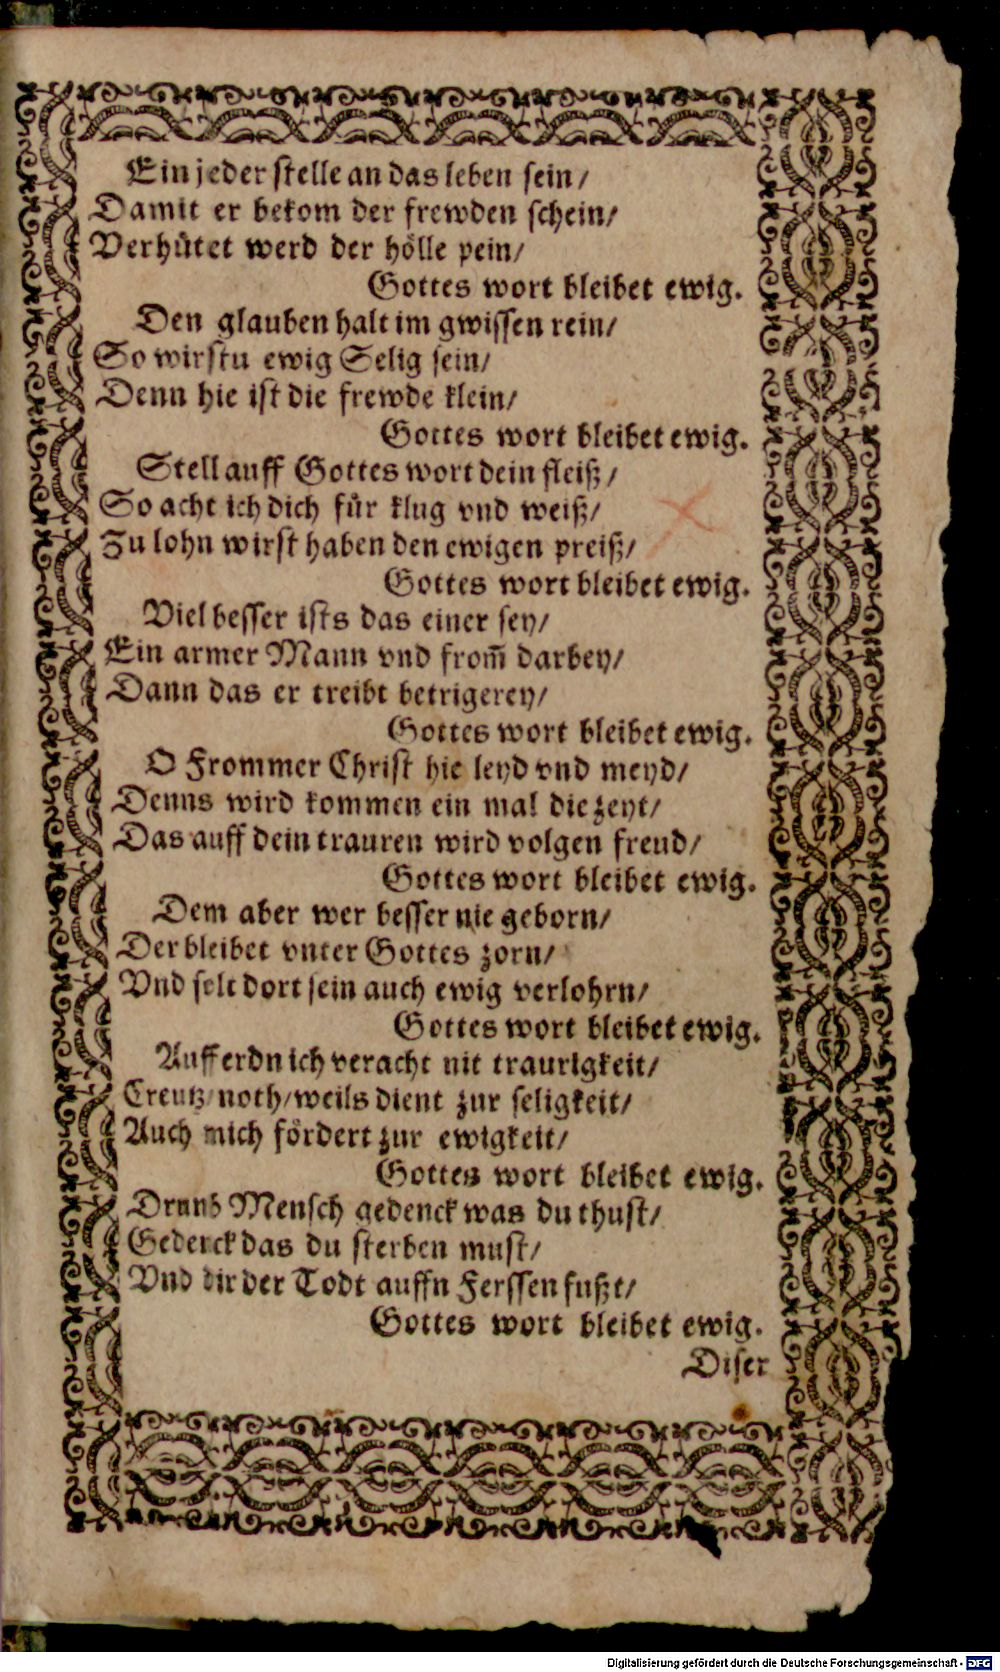 Ein jeder stelle an das leben sein/
Damit er bekom der frewden schein/
Verhütet werd der hölle pein/
Gottes wort bleibet ewig.
Den glauben halt im gwissen rein/
So wirstu ewig Selig sein/
Denn hie ist die frewde klein/
Gottes wort bleibet ewig.
Stell auff Gottes wort dein fleiß/
So acht ich dich für klug vnd weiß/
Zu lohn wirst haben den ewigen preiß/
Gottes wort bleibet ewig.
Viel besser ists das einer sey/
Ein armer Mann vnd from̃ darbey/
Dann das er treibt betrigerey/
Gottes wort bleibet ewig.
O Frommer Christ hie leyd vnd meyd/
Denns wird kommen ein mal die zeyt/
Das auff dein trauren wird volgen freud/
Gottes wort bleibet ewig.
Dem aber wer besser nie geborn/
Der bleibet vnter Gottes zorn/
Vnd solt dort sein auch ewig verlohrn/
Gottes wort bleibet ewig.
Auff erdn ich veracht nit traurigkeit/
Creutz/noth/weils dient zur seligkeit/
Auch mich fördert zur ewigkeit/
Gottes wort bleibet ewig.
Drumb Mensch gedenck was du thust/
Gedenck das du sterben must/
Vnd dir der Todt auffn Ferssen fußt/
Gottes wort bleibet ewig.
Diser
Digitalisierung gefördert durch die Deutsche Forschungsgemeinschaft - DFG